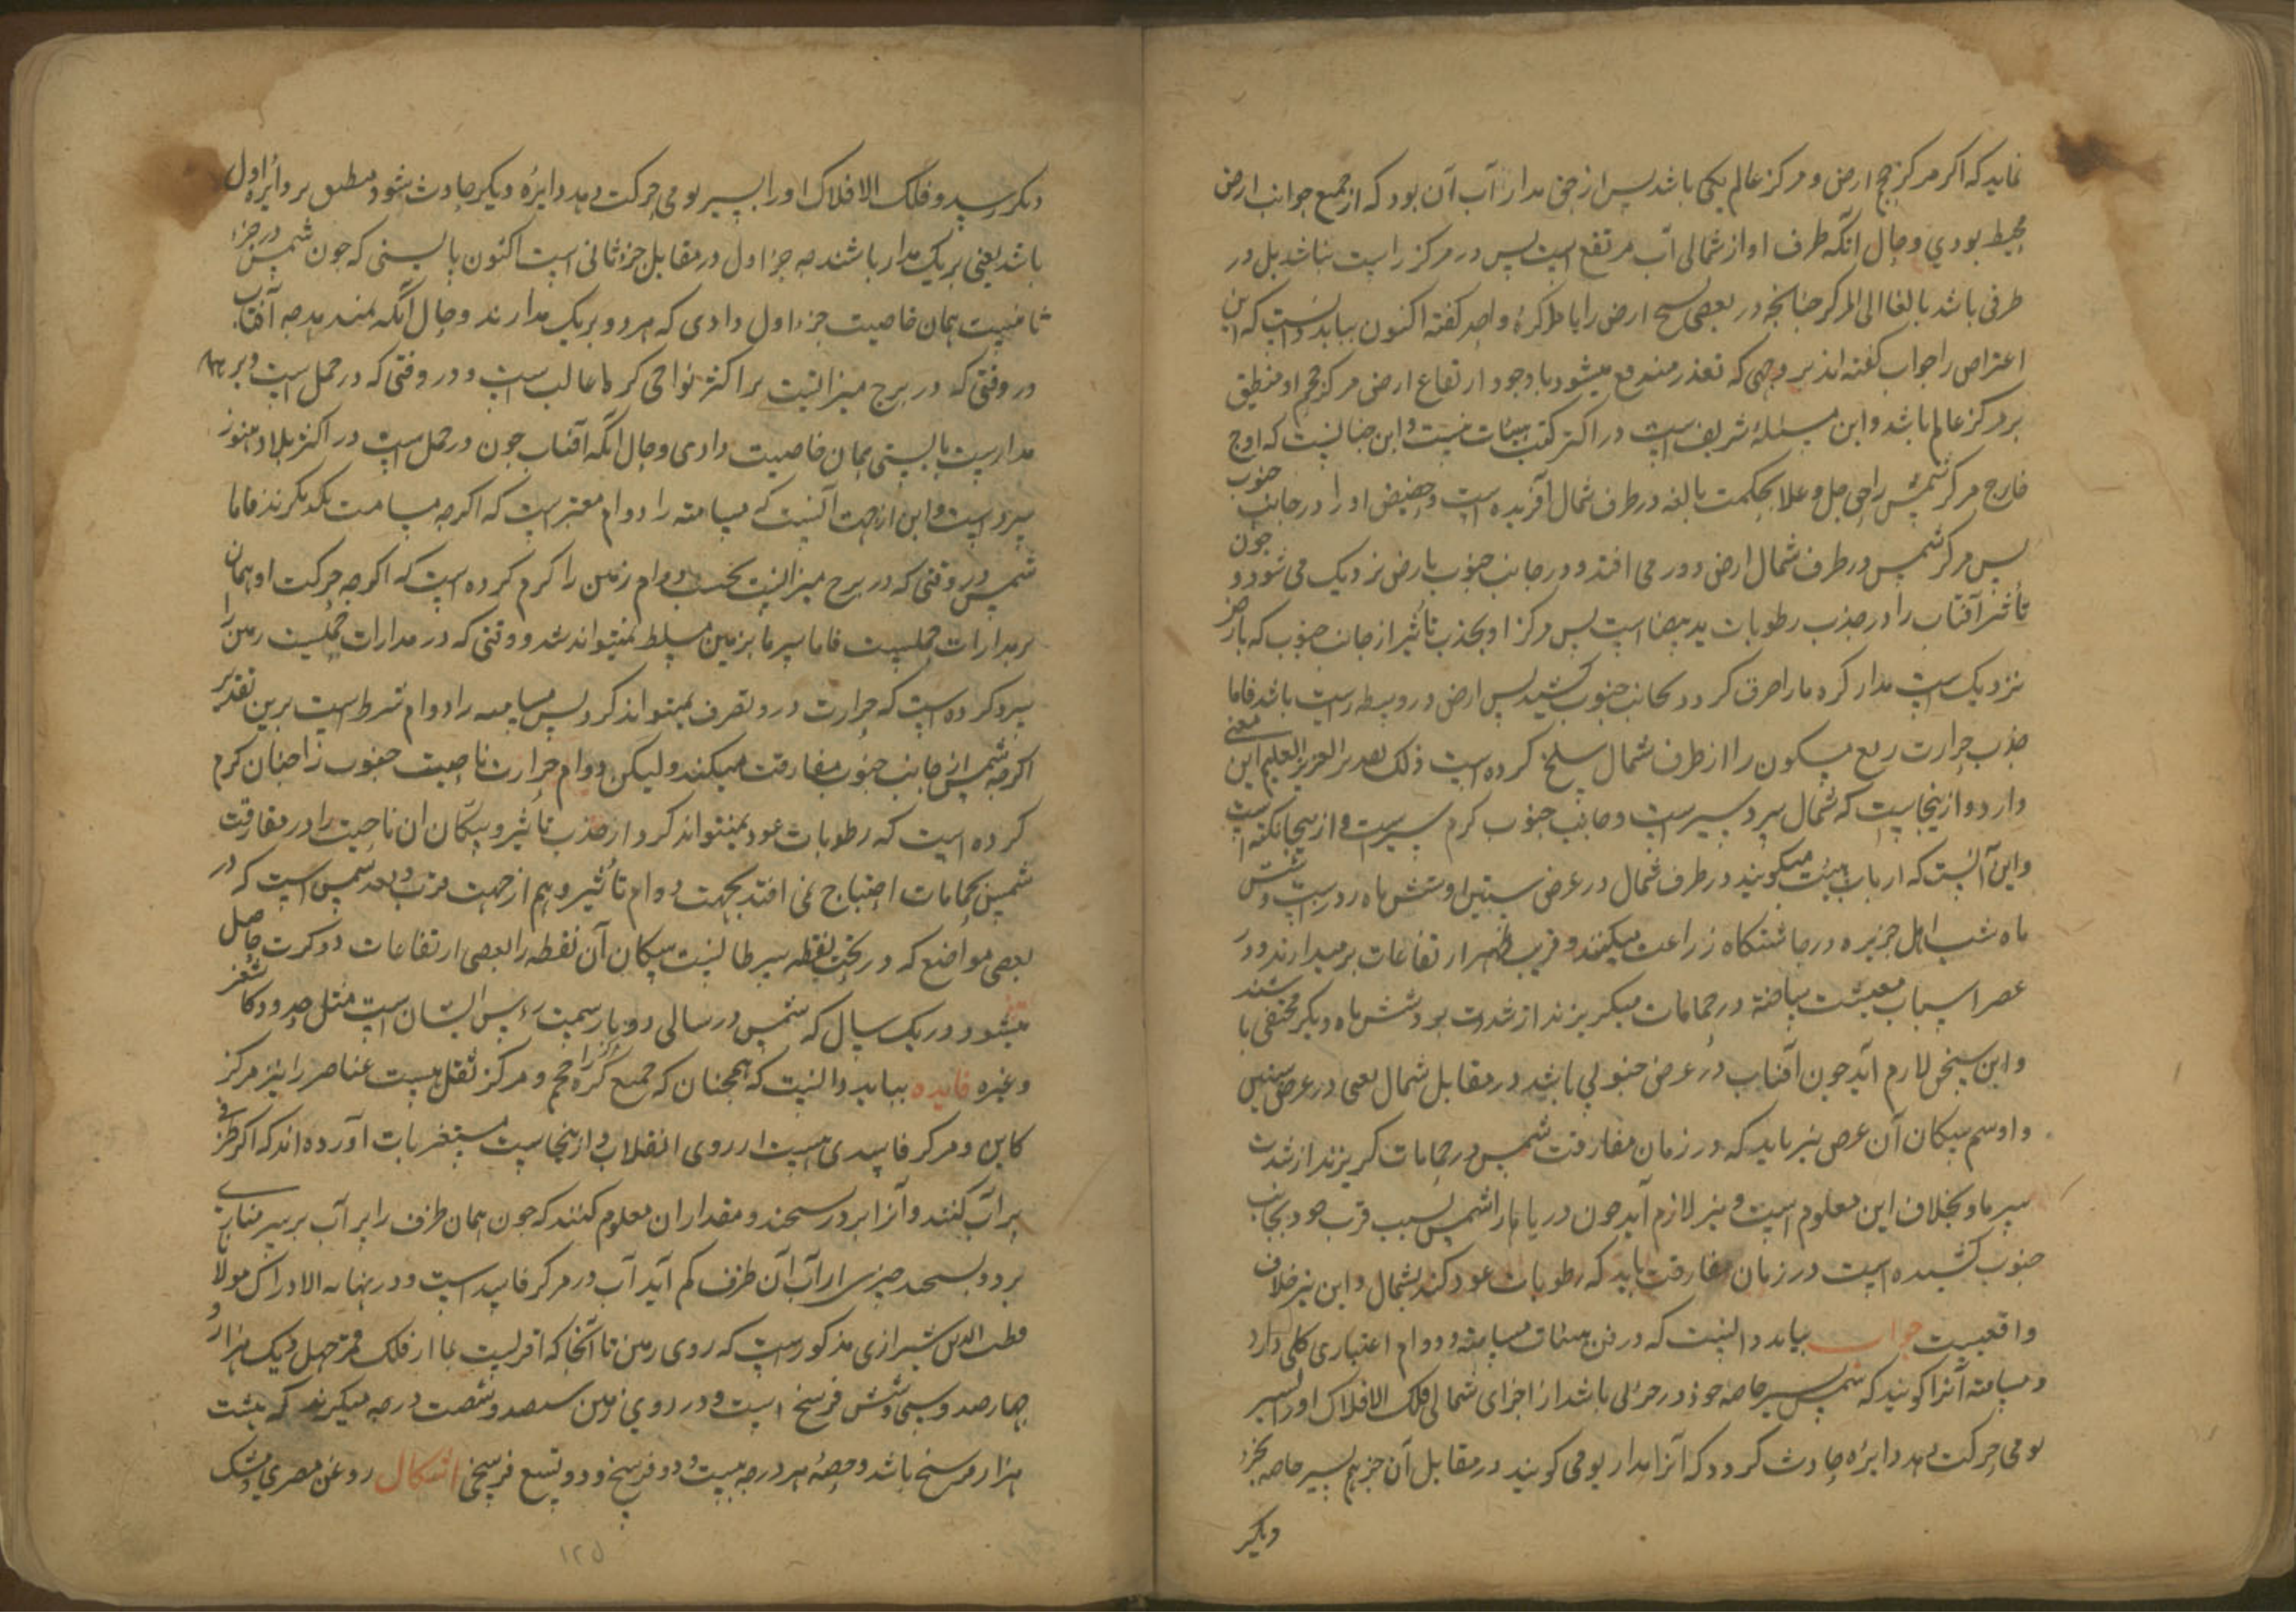 نماید که اکر مرکز حجم ارض و مرکز عالم یکی باشد پس از حق مدار آب آن بود که از جمیع جوانب ارض
محیط بودی و حال آنکه طرف او از شمالی آب مرتفع است پس در مرکز راست نباشد بل در
طرفی باشد بالغا الی المرکز چنانچه در بعضی نسخ ارض را با ما کره واحد کفته اکنون بباید دانست که این
اعتراض را جواب کفته اند بر وجهی که تعذر مندفع میشود با وجود ارتفاع ارض مرکز حجم او منطبق
بر مرکز عالم باشد و این مسئله شریف است در اکثر کتب هیئات نیست و این چنانست که اوج
خارج مرکز شمس را حق جل و علا بحکمت بالغه در طرف شمال آفریده است و حضیض او را در جانب جنوب
پس مرکز شمس در طرف شمال ارض دور می افتد و در جانب جنوب بارض نزدیک می شود و چون
تأثیر آفتاب را در جذب رطوبات ید بیضا است پس مرکز او بجذب تأثیر از جانب جنوب که بارض
نزدیک است مدار کره ما را حرق کرد و بجانب جنوب کشید پس ارض در وسط راست باشد فاما
جذب حرارت ربع مسکون را از طرف شمال سلخ کرده است ذلک تقدیر العزیز العلیم این معنی
دارد و از ینجاست که شمال سرد سیر است و جانب جنوب کرم سیر است و از ینجا نکته است
و این آنست که ارباب هیئت میکویند در طرف شمال در عرض ستین او شش ماه روز است و شش
ماه شب اهل جزیره در چاشتکاه زراعت میکنند و قریب ظهر ارتفاعات بر میدارند و در
عصر اسباب معیشت ساخته در حمامات میکریزند از شدت برد و شش ماه دیکر مختفی باشند
و این سخن لازم آید چون آفتاب در عرض جنوبی باشد در مقابل شمال یعنی در عرض ستین
و او سم سکان آن عرض نیز باید که در زمان مفارقت شمس در حمامات کریزند از شدت
سرما و بخلاف این معلوم است و نیز لازم آید چون دریا ما را شمس بسبب قرب خود بجانب
جنوب کشیده است در زمان مفارقت باید که رطوبات عود کند بشمال و این نیز خلاف
واقعیست جواب بباید دانست که در فن هیئات مسامته و دوام اعتباری کلی دارد
و مسامته آنرا کویند که شمس بسیر خاصه خود در جزئی باشد از اجزای شمالی فلک الافلاک او را بسیر
یومی حرکت دهد دایره حادث کردد که آنرا مدار یومی کویند در مقابل آن جزء هم بسیر خاصه بجزء
دیکر
دیکر رسید و فلک الافلاک او را بسیر یومی حرکت دهد دایره دیکر حادث شود منطبق بر دایره اول
باشد یعنی بر یک مدار باشند چه جزء اول در مقابل جزء ثانی است اکنون بایستی که چون شمس در جزء
ثانیست همان خاصیت جزء اول دادی که هر دو بر یک مدارند و حال آنکه نمیدهد چه آفتاب
در وقتی که در برج میزانست بر اکثر نواحی کرما غالب است و در وقتی که در حمل است و بر همان
مدار است بایستی همان خاصیت دادی و حال آنکه آفتاب چون در حمل است در اکثر بلاد هنوز
سرد است و این از جهت آنست که مسامته را دوام معتبر است که اکرچه مسامت یکدیکرند فاما
شمس در وقتی که در برج میزانست بحسب دوام زمین را کرم کرده است که اکرچه حرکت او همان
بر مدارات حملیست فاما سرما بزمین مسلط نمیتواند شد و وقتی که در مدارات حملیست زمین را
سرد کرده است که حرارت در و تصرف نمیتواند کرد پس مسامته را دوام شرط است برین تقدیر
اکرچه شمس از جانب جنوب مفارقت میکند و لیکن دوام حرارت ناحیت جنوب را چنان کرم
کرده است که رطوبات عود نمیتواند کرد از جذب تأثیر و سکان آن ناحیت را در مفارقت
شمس بحمامات احتیاج نمی افتد بجهت دوام تأثیر و هم از جهت قرب و بعد شمس است که در
بعضی مواضع که در تحت نقطه سرطانست سکان آن نقطه را بعضی ارتفاعات دو کرت حاصل
میشود در یک سال که شمس در سالی دو بار سمت رءس ایشان است مثل حدود کاشغر
و غیره فایده بباید دانست که همچنان که جمیع کره را مرکز حجم و مرکز ثقل هست عناصر را نیز مرکز
کاین و مرکز فاسدی هست از روی انقلاب و از ینجاست مستغربات آورده اند که اکر ظرفی
پر آب کنند و آنرا بر در سنجند و مقدار آن معلوم کنند که چون همان ظرف را پر آب بر سر مناره
برد و بسنجد چیزی از آب آن ظرف کم آید آب در مرکز فاسد است و در نهایة الادراک مولانا
قطب الدین شیرازی مذکور است که روی زمین تا آنجا که اقربست بما از فلک قمر چهل و یک هزار و
چهارصد و سی و شش فرسخ است و در روی زمین سیصد و شصت درجه میکیرند که هشت
هزار فرسخ باشد و حصه هر درجه بیست و دو فرسخ و دو تسع فرسخ اشکال روغن مصری و مشک
۱۲۵